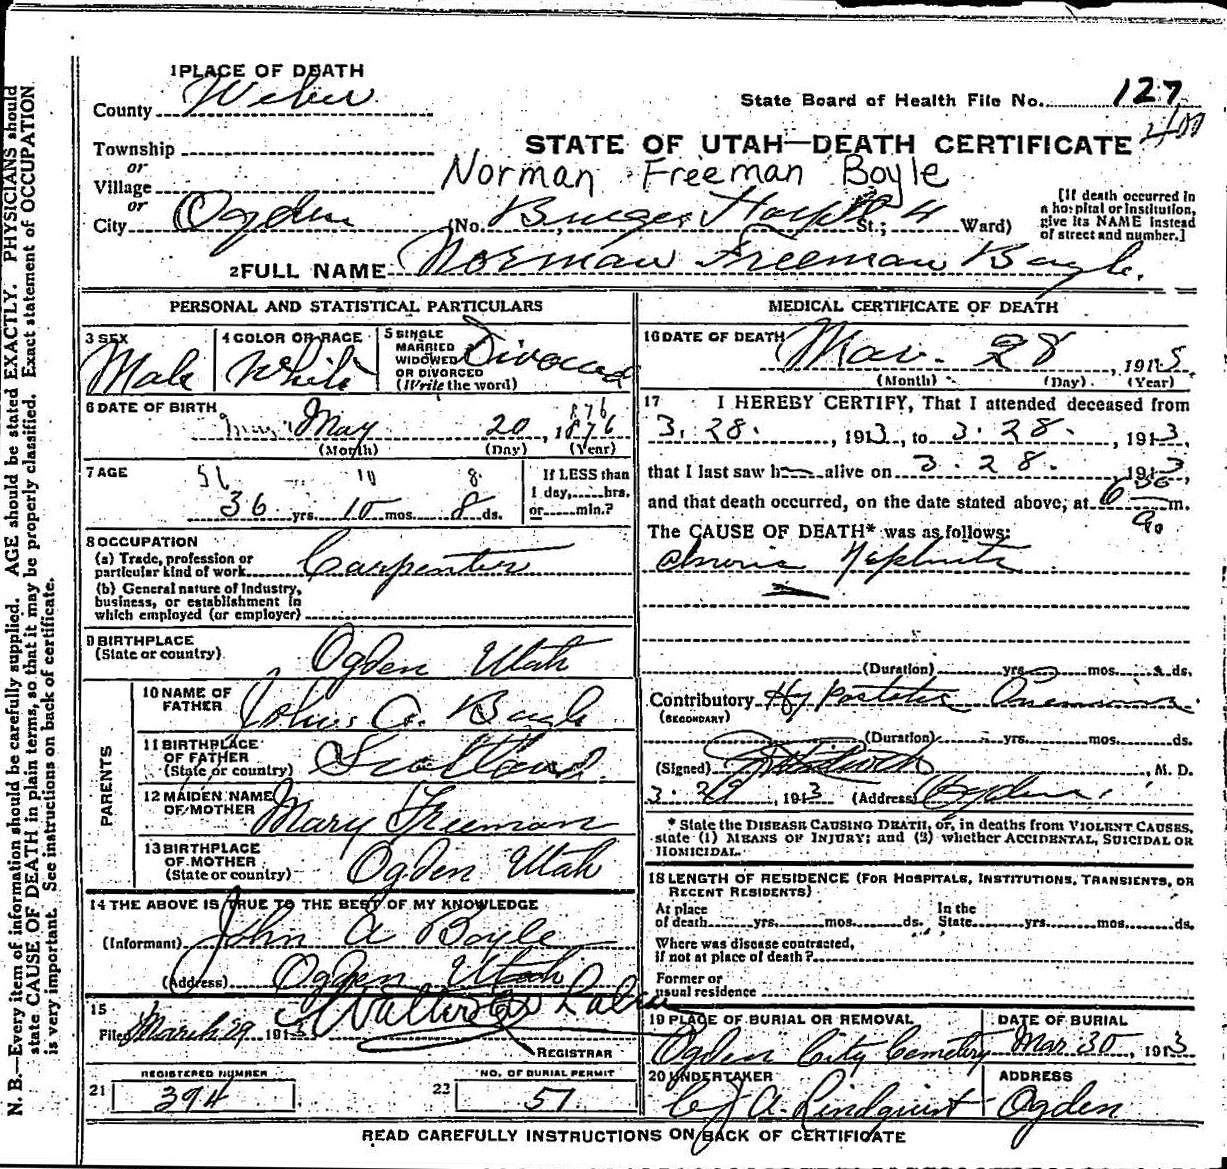 N. B.—Every item of information should be carefully supplied. AGE should be stated EXACTLY. PHYSICIANS should
state CAUSE OF DEATH in plain terms, so that it may be properly classified. Exact statement of OCCUPATION
is very important. See instructions on back of certificate.
1 PLACE OF DEATH
County Weber
State Board of Health File No. 127
400
STATE OF UTAH—DEATH CERTIFICATE
Township
or
Village
or
Norman Freeman Boyle
City Ogden (No. Hospt St.; 4 Ward)
[If death occurred in
a hospital or institution,
give its NAME instead
of street and number.]
2 FULL NAME Norman Freeman Boyle.
PERSONAL AND STATISTICAL PARTICULARS
3 SEX
Male
4 COLOR OR RACE
White
5 SINGLE
MARRIED
WIDOWED
OR DIVORCED
(Write the word)
Divorced
6 DATE OF BIRTH
876
May 20, 1876
(Month) (Day) (Year)
7 AGE
10 8
36 yrs. 10 mos. 8 ds.
If LESS than
1 day,......hrs.
or......min.?
8 OCCUPATION
(a) Trade, profession or
particular kind of work Carpenter
(b) General nature of industry,
business, or establishment in
which employed (or employer)
9 BIRTHPLACE
(State or country)
Ogden Utah
PARENTS
10 NAME OF
FATHER
John A. Boyle
11 BIRTHPLACE
OF FATHER
(State or country)
Scotland.
12 MAIDEN NAME
OF MOTHER
Mary Freeman
13 BIRTHPLACE
OF MOTHER
(State or country)
Ogden Utah
14 THE ABOVE IS TRUE TO THE BEST OF MY KNOWLEDGE
(Informant) John A Boyle
(Address) Ogden Utah
15
Filed March 29 1913
REGISTRAR
REGISTERED NUMBER
21 394
NO. OF BURIAL PERMIT
22 51
MEDICAL CERTIFICATE OF DEATH
16 DATE OF DEATH
Mar. 28, 1913
(Month) (Day) (Year)
17 I HEREBY CERTIFY, That I attended deceased from
3. 28., 1913, to 3. 28., 1913,
that I last saw h alive on 3. 28. 1913
and that death occurred, on the date stated above, at 6 30 a. m.
The CAUSE OF DEATH* was as follows:
Chronic Nephritis
(Duration) yrs. mos. ds.
Contributory Hypostatic Pneumonia
(SECONDARY)
(Duration) yrs. mos. ds.
(Signed) , M. D.
3. 29, 1913 (Address) Ogden.
* State the DISEASE CAUSING DEATH, or, in deaths from VIOLENT CAUSES,
state (1) MEANS OF INJURY; and (2) whether ACCIDENTAL, SUICIDAL OR
HOMICIDAL.
18 LENGTH OF RESIDENCE (FOR HOSPITALS, INSTITUTIONS, TRANSIENTS, OR
RECENT RESIDENTS)
At place
of death......yrs......mos......ds.
In the
State......yrs......mos......ds.
Where was disease contracted,
if not at place of death?
Former or
usual residence
19 PLACE OF BURIAL OR REMOVAL
Ogden City Cemetery
DATE OF BURIAL
Mar 30, 1913
20 UNDERTAKER
C J A. Lindquist
ADDRESS
Ogden
READ CAREFULLY INSTRUCTIONS ON BACK OF CERTIFICATE